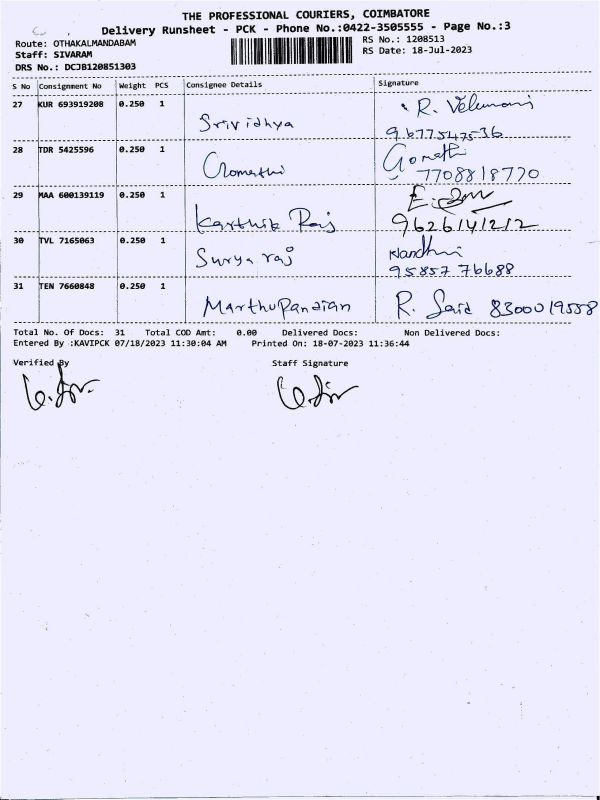 THE PROFESSIONAL COURIERS, COIMBATORE
Delivery Runsheet - PCK - Phone No.:0422-3505555 - Page No.:3
Route: OTHAKALMANDABAM
Staff: SIVARAM
DRS No.: DCJB120851303
RS No.: 1208513
RS Date: 18-Jul-2023
S No Consignment No Weight PCS Consignee Details Signature
27 KUR 693919208 0.250 1 Srividhya R. Velumani
9677547536
28 TDR 5425596 0.250 1 Gomathi Gomathi
7708818770
29 MAA 600139119 0.250 1 Karthik Raj
9626141212
30 TVL 7165063 0.250 1 Surya raj Nandhini
95857 76688
31 TEN 7660848 0.250 1 MarthuPandian R. 8300019558
Total No. Of Docs: 31 Total COD Amt: 0.00 Delivered Docs: Non Delivered Docs:
Entered By :KAVIPCK 07/18/2023 11:30:04 AM Printed On: 18-07-2023 11:36:44
Verified By Staff Signature